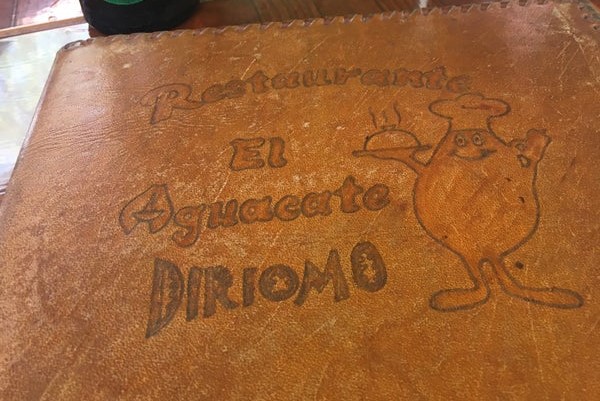 Restaurante
El
Aguacate
DIRIOMO